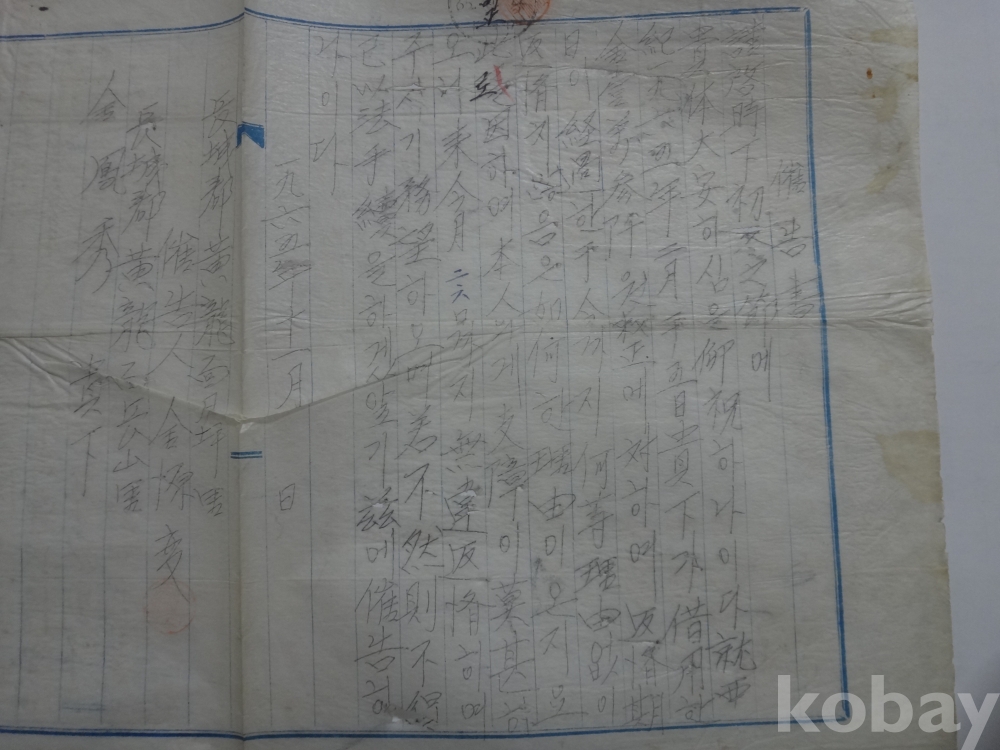 催告書
謹啓時下初冬之節에
貴体大安하심을仰祝하나이다就而
紀一九六五年二月平五日貴下가借用한
金 원整에対하여返済期
日이経過한于今까지何等理由없이
返済치 않음은如何한理由이온지모
로 因하여本人에게支障이莫甚하
오니来今月二六日까지無違返済하여
주시기務望하오며若不然則不得
已以法手續을하겠알기玆에催告하
나이다
一九六五年十一月 日
長城郡黄龍面月坪里
催告人金源変
長城郡黄龍面長山里
金鳳秀 貴下
kobay